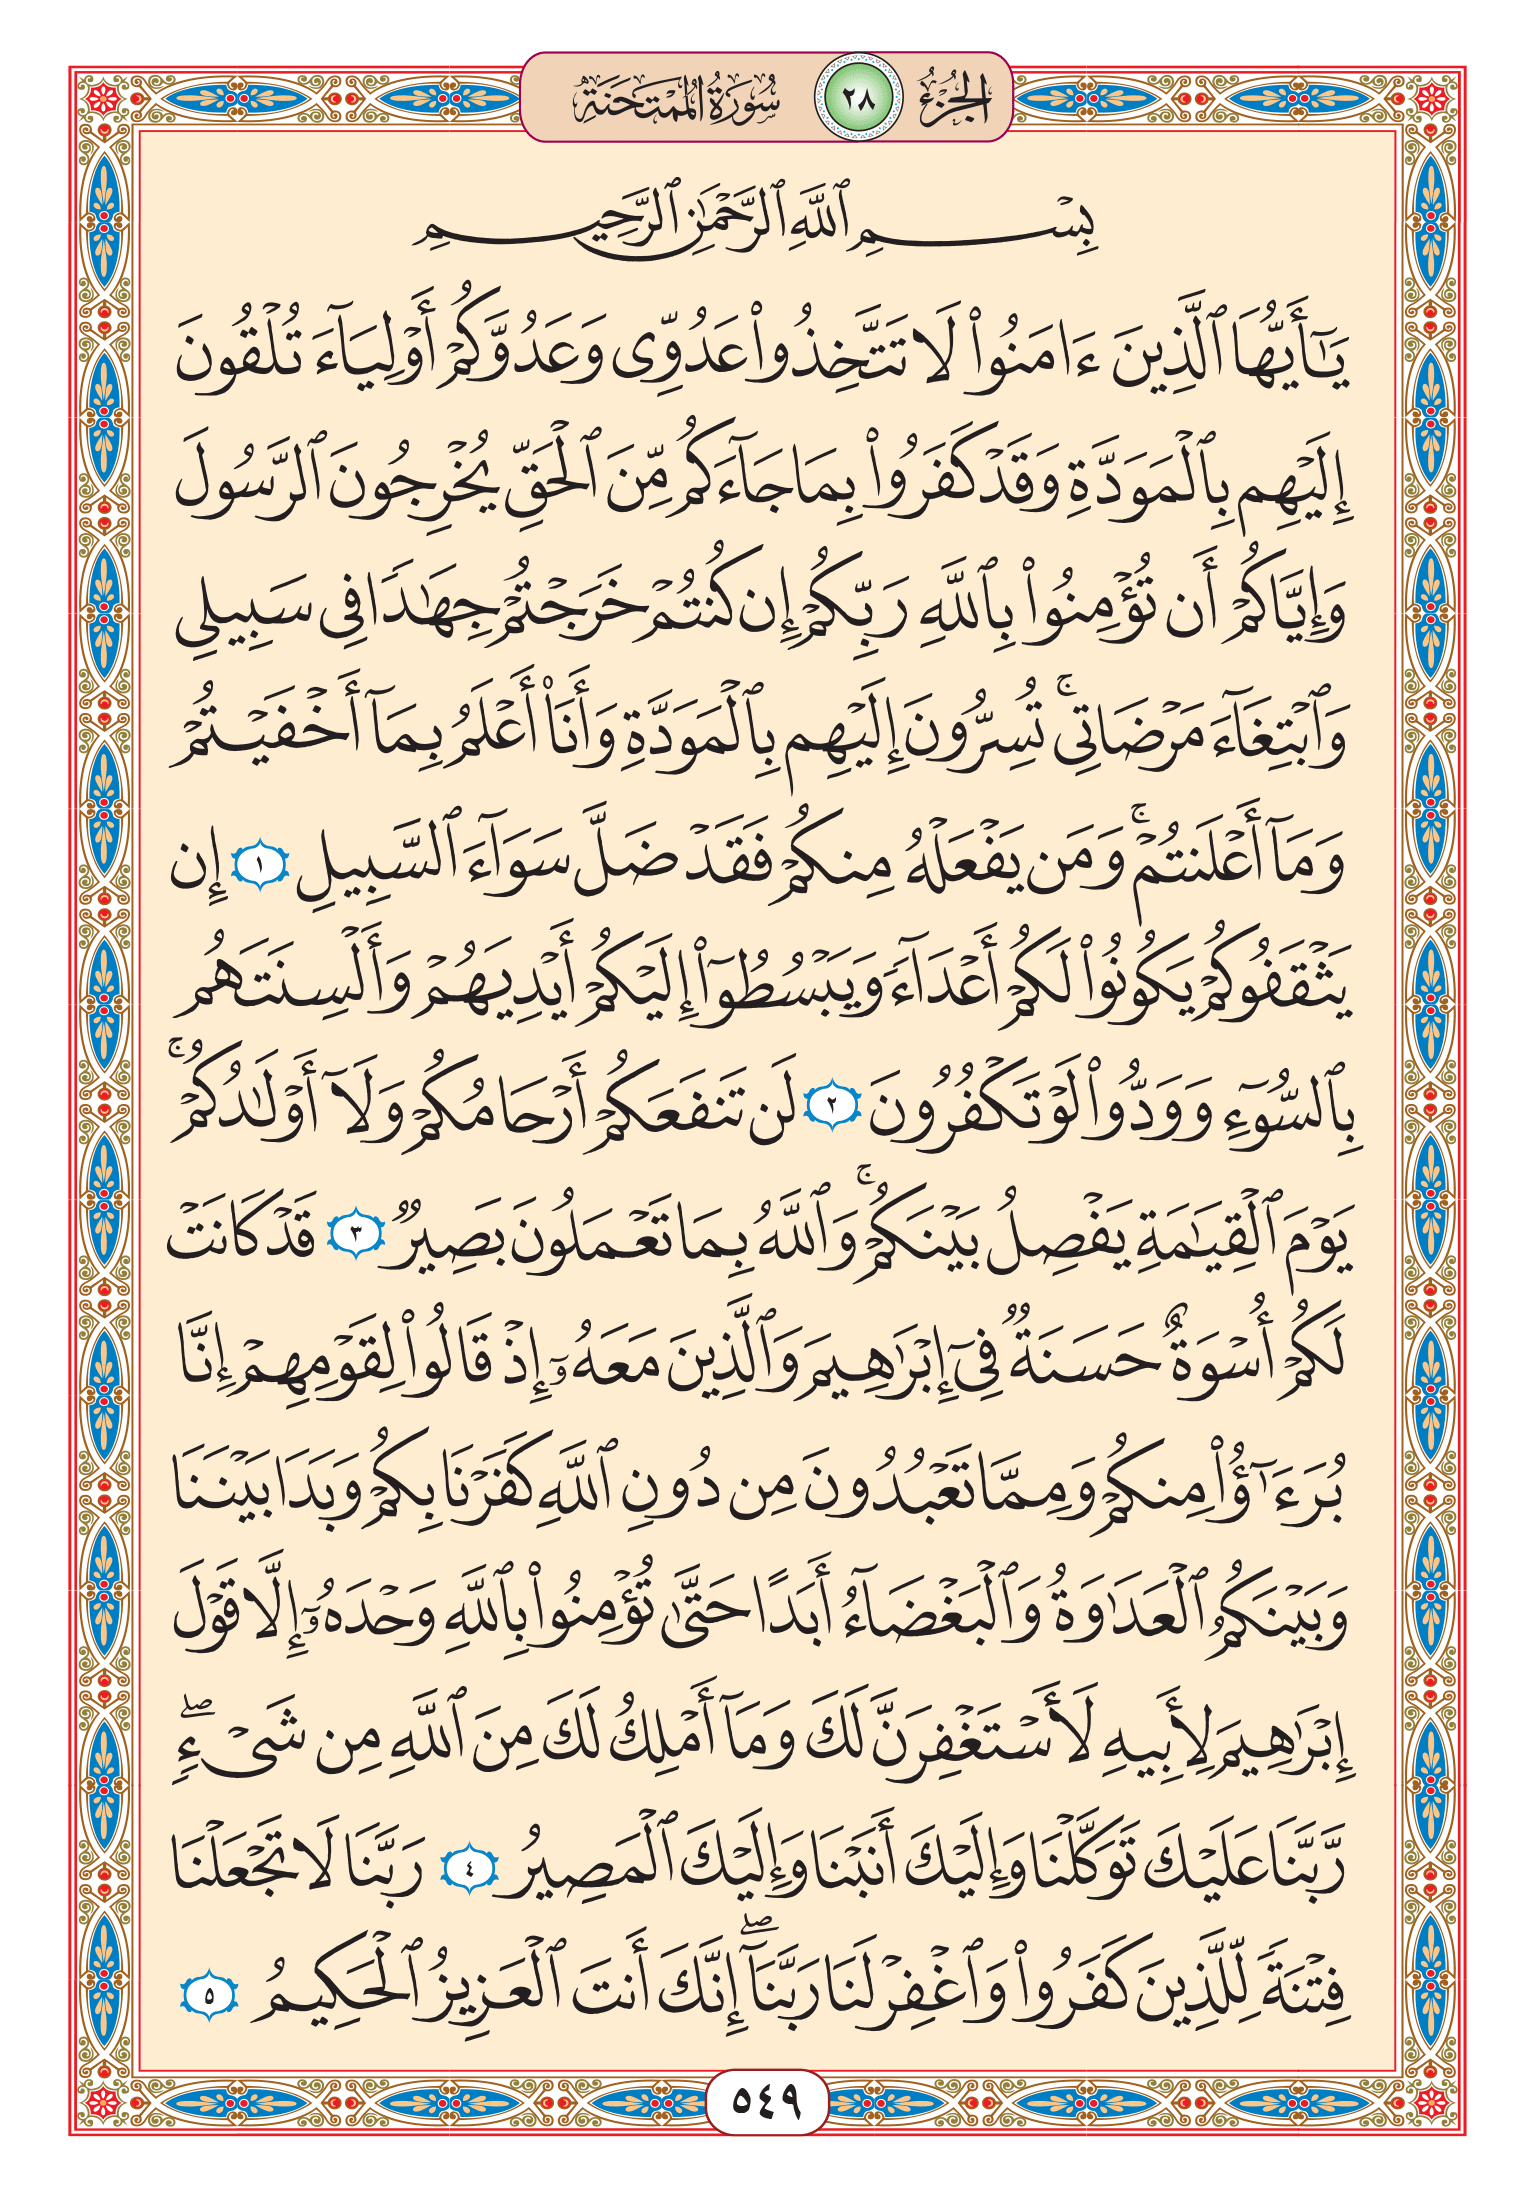 الجزء ٢٨ سورة الممتحنة
بِسْمِ ٱللَّهِ ٱلرَّحْمَٰنِ ٱلرَّحِيمِ
يَٰٓأَيُّهَا ٱلَّذِينَ ءَامَنُوا۟ لَا تَتَّخِذُوا۟ عَدُوِّى وَعَدُوَّكُمْ أَوْلِيَآءَ تُلْقُونَ
إِلَيْهِم بِٱلْمَوَدَّةِ وَقَدْ كَفَرُوا۟ بِمَا جَآءَكُم مِّنَ ٱلْحَقِّ يُخْرِجُونَ ٱلرَّسُولَ
وَإِيَّاكُمْ أَن تُؤْمِنُوا۟ بِٱللَّهِ رَبِّكُمْ إِن كُنتُمْ خَرَجْتُمْ جِهَٰدًا فِى سَبِيلِى
وَٱبْتِغَآءَ مَرْضَاتِى ۚ تُسِرُّونَ إِلَيْهِم بِٱلْمَوَدَّةِ وَأَنَا۠ أَعْلَمُ بِمَآ أَخْفَيْتُمْ
وَمَآ أَعْلَنتُمْ ۚ وَمَن يَفْعَلْهُ مِنكُمْ فَقَدْ ضَلَّ سَوَآءَ ٱلسَّبِيلِ ١ إِن
يَثْقَفُوكُمْ يَكُونُوا۟ لَكُمْ أَعْدَآءً وَيَبْسُطُوٓا۟ إِلَيْكُمْ أَيْدِيَهُمْ وَأَلْسِنَتَهُم
بِٱلسُّوٓءِ وَوَدُّوا۟ لَوْ تَكْفُرُونَ ٢ لَن تَنفَعَكُمْ أَرْحَامُكُمْ وَلَآ أَوْلَٰدُكُمْ ۚ
يَوْمَ ٱلْقِيَٰمَةِ يَفْصِلُ بَيْنَكُمْ ۚ وَٱللَّهُ بِمَا تَعْمَلُونَ بَصِيرٌ ٣ قَدْ كَانَتْ
لَكُمْ أُسْوَةٌ حَسَنَةٌ فِىٓ إِبْرَٰهِيمَ وَٱلَّذِينَ مَعَهُۥٓ إِذْ قَالُوا۟ لِقَوْمِهِمْ إِنَّا
بُرَءَٰٓؤُا۟ مِنكُمْ وَمِمَّا تَعْبُدُونَ مِن دُونِ ٱللَّهِ كَفَرْنَا بِكُمْ وَبَدَا بَيْنَنَا
وَبَيْنَكُمُ ٱلْعَدَٰوَةُ وَٱلْبَغْضَآءُ أَبَدًا حَتَّىٰ تُؤْمِنُوا۟ بِٱللَّهِ وَحْدَهُۥٓ إِلَّا قَوْلَ
إِبْرَٰهِيمَ لِأَبِيهِ لَأَسْتَغْفِرَنَّ لَكَ وَمَآ أَمْلِكُ لَكَ مِنَ ٱللَّهِ مِن شَىْءٍ ۖ
رَّبَّنَا عَلَيْكَ تَوَكَّلْنَا وَإِلَيْكَ أَنَبْنَا وَإِلَيْكَ ٱلْمَصِيرُ ٤ رَبَّنَا لَا تَجْعَلْنَا
فِتْنَةً لِّلَّذِينَ كَفَرُوا۟ وَٱغْفِرْ لَنَا رَبَّنَآ ۖ إِنَّكَ أَنتَ ٱلْعَزِيزُ ٱلْحَكِيمُ ٥
٥٤٩